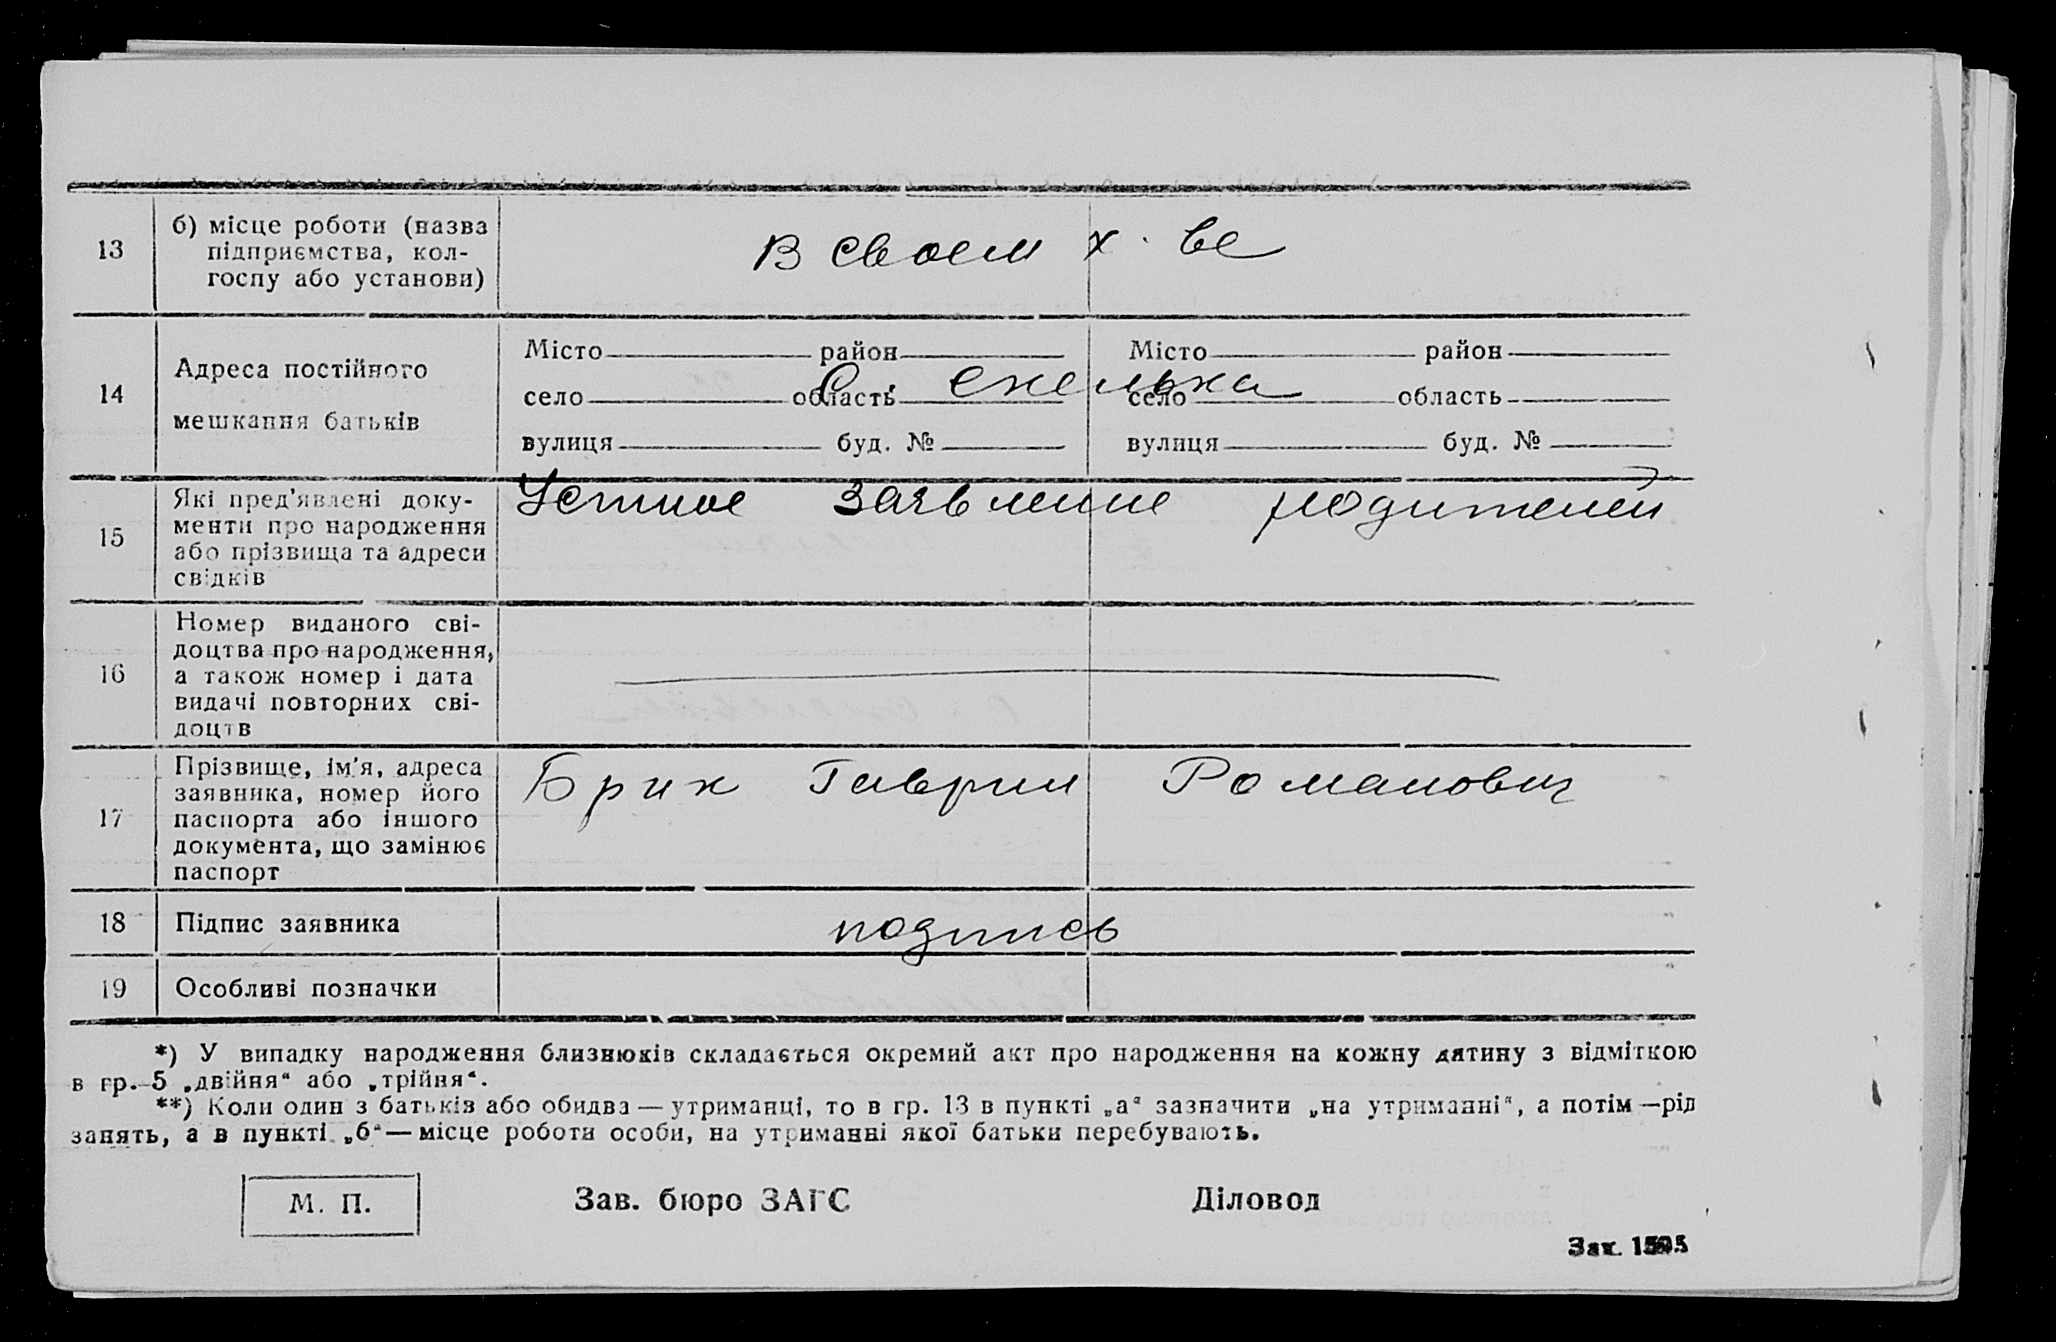 13
б) місце роботи (назва
підприємства, кол-
госпу або установи)
В своем х-ве
14
Адреса постійного
мешкання батьків
Місто район Місто район
село область село область
С. Скелька
вулиця буд. № вулиця буд. №
15
Які пред'явлені доку-
менти про народження
або прізвища та адреси
свідків
Устное заявление родителей
16
Номер виданого сві-
доцтва про народження,
а також номер і дата
видачі повторних сві-
доцтв
17
Прізвище, ім'я, адреса
заявника, номер його
паспорта або іншого
документа, що замінює
паспорт
Брик Гаврил Романович
18
Підпис заявника
подпись
19
Особливі позначки
*) У випадку народження близнюків складається окремий акт про народження на кожну дитину з відміткою
в гр. 5 „двійня“ або „трійня“.
**) Коли один з батьків або обидва — утриманці, то в гр. 13 в пункті „а“ зазначити „на утриманні“, а потім — рід
занять, а в пункті „б“ — місце роботи особи, на утриманні якої батьки перебувають.
М. П.
Зав. бюро ЗАГС
Діловод
Зак.